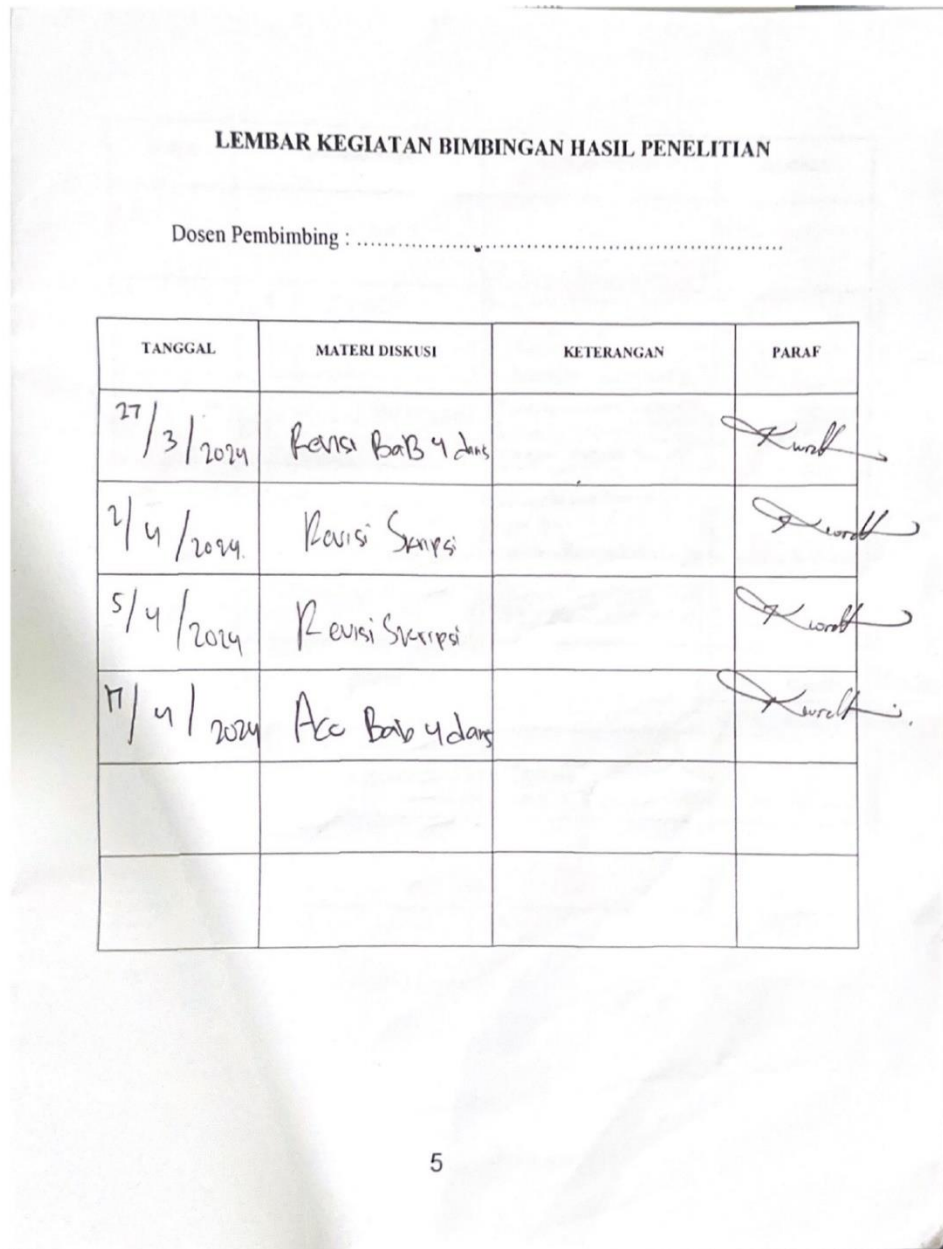 LEMBAR KEGIATAN BIMBINGAN HASIL PENELITIAN
Dosen Pembimbing : ....................................................................
TANGGAL MATERI DISKUSI KETERANGAN PARAF
27/3/2024 Revisi BaB 4 dan 5
2/4/2024. Revisi Skripsi
5/4/2024 Revisi Skripsi
17/4/2024 Acc Bab 4 dan 5
5